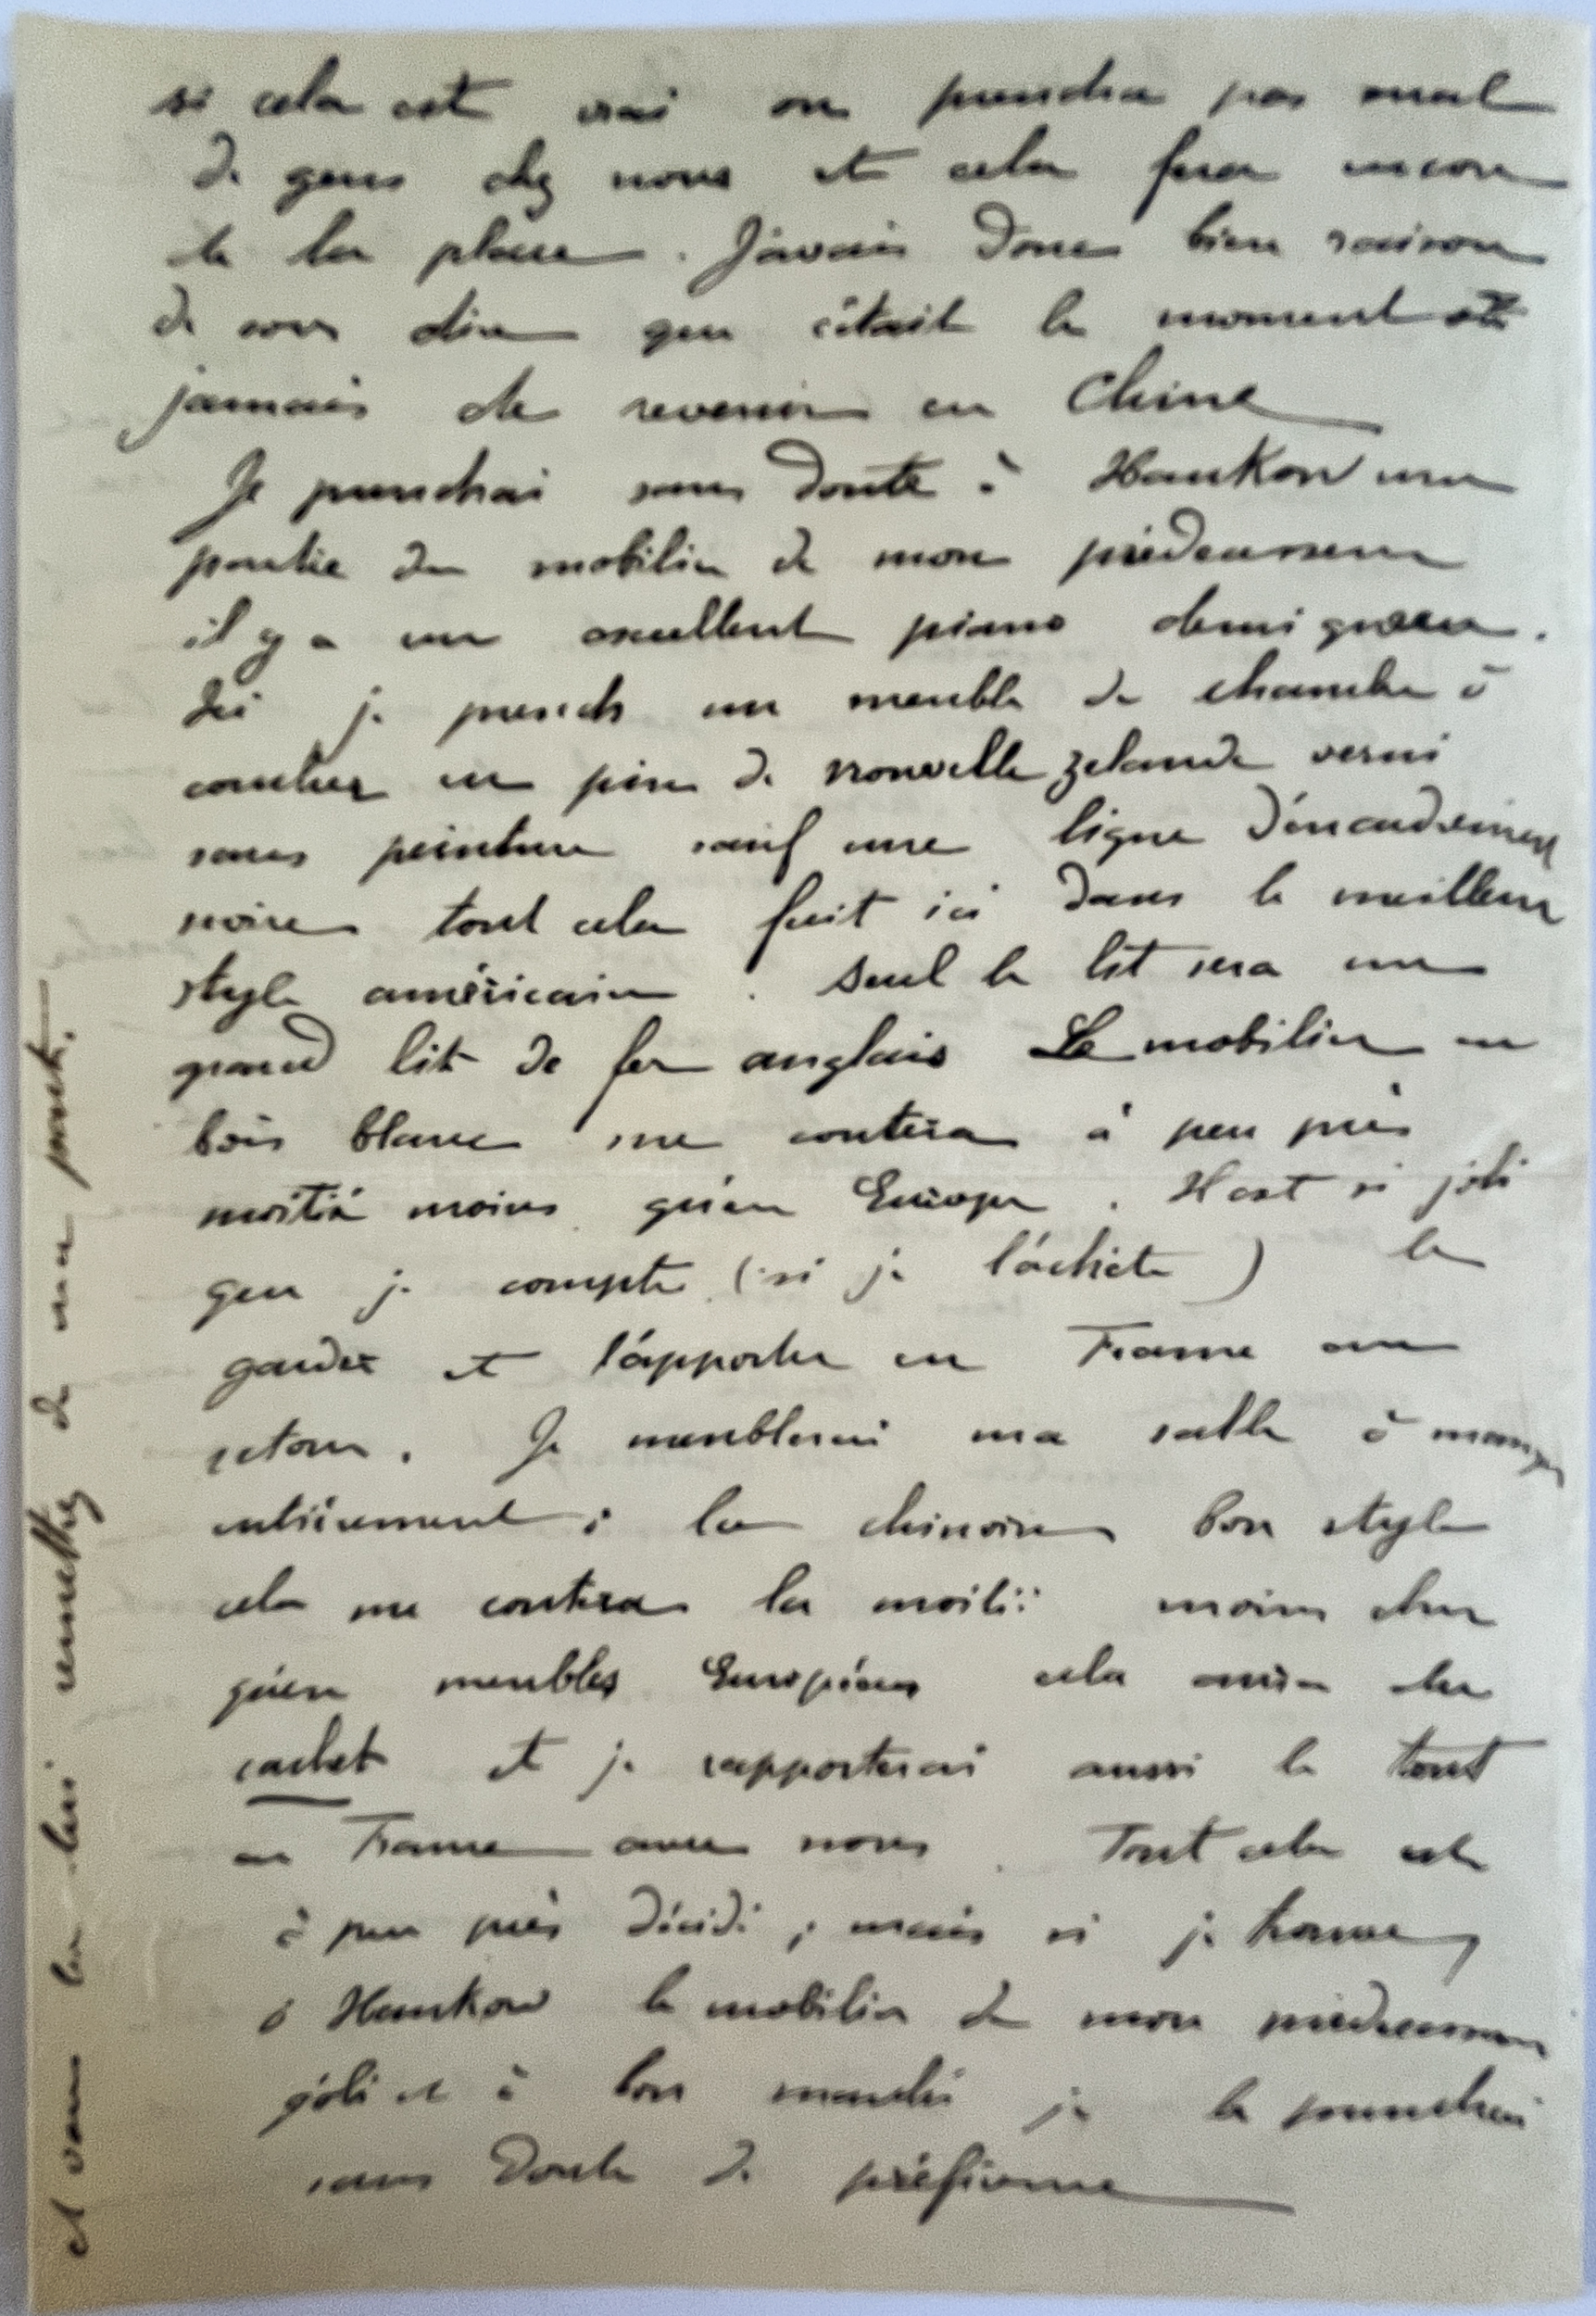 si cela est vrai on prendra pas mal
de gens chez nous et cela fera encore
de la place. J'avais donc bien raison
de vous dire que c'était le moment ou
jamais de revenir en Chine
Je prendrai sans doute à Hankow une
partie du mobilier de mon prédécesseur
il y a un excellent piano demi queue.
Ici je prends un meuble de chambre à
coucher en pin de nouvelle zelande verni
sans peinture sauf une ligne d'encadrement
noire tout cela fait ici dans le meilleur
style américain. Seul le lit sera un
grand lit de fer anglais Le mobilier en
bois blanc me coutera à peu près
moitié moins qu'en Europe. Il est si joli
que je compte (si je l'achète) le
garder et l'apporter en France au
retour. Je meublerai ma salle à manger
entièrement à la chinoise bon style
cela me coutera la moitié moins cher
qu'en meubles Européens cela aura du
cachet et je rapporterai aussi le tout
en France avec nous. Tout cela est
à peu près décidé, mais si je trouve,
à Hankow le mobilier de mon prédécesseur
joli et à bon marché je le prendrai
sans doute de préférence
et vous la lui remettrez de ma part.